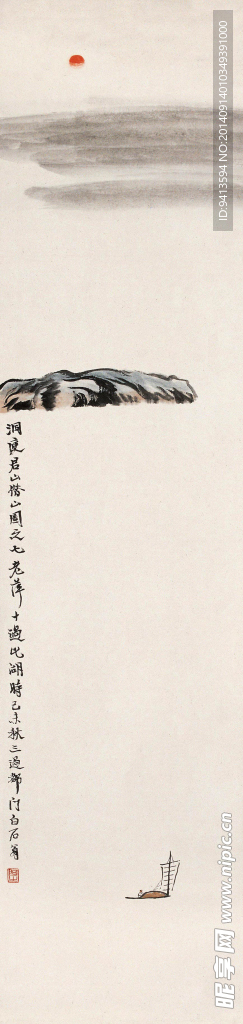 洞庭君山借山图之七老萍十过此湖时己未秋三过都门白石翁
ID:9413594 NO:20140914010349391000
昵享网 www.nipic.cn